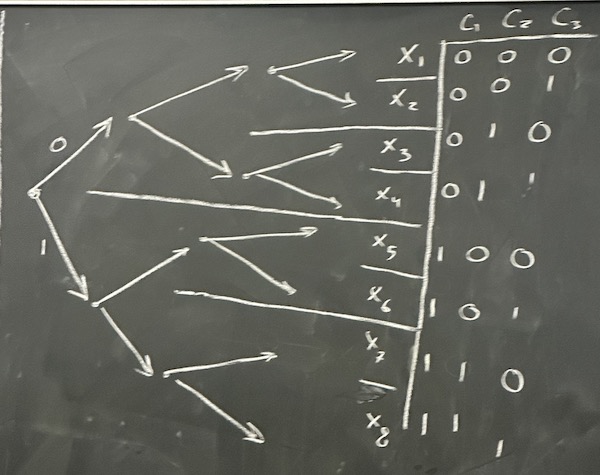 C₁ C₂ C₃
X₁ 0 0 0
X₂ 0 0 1
0
X₃ 0 1 0
X₄ 0 1 1
1
X₅ 1 0 0
X₆ 1 0 1
X₇ 1 1 0
X₈ 1 1 1